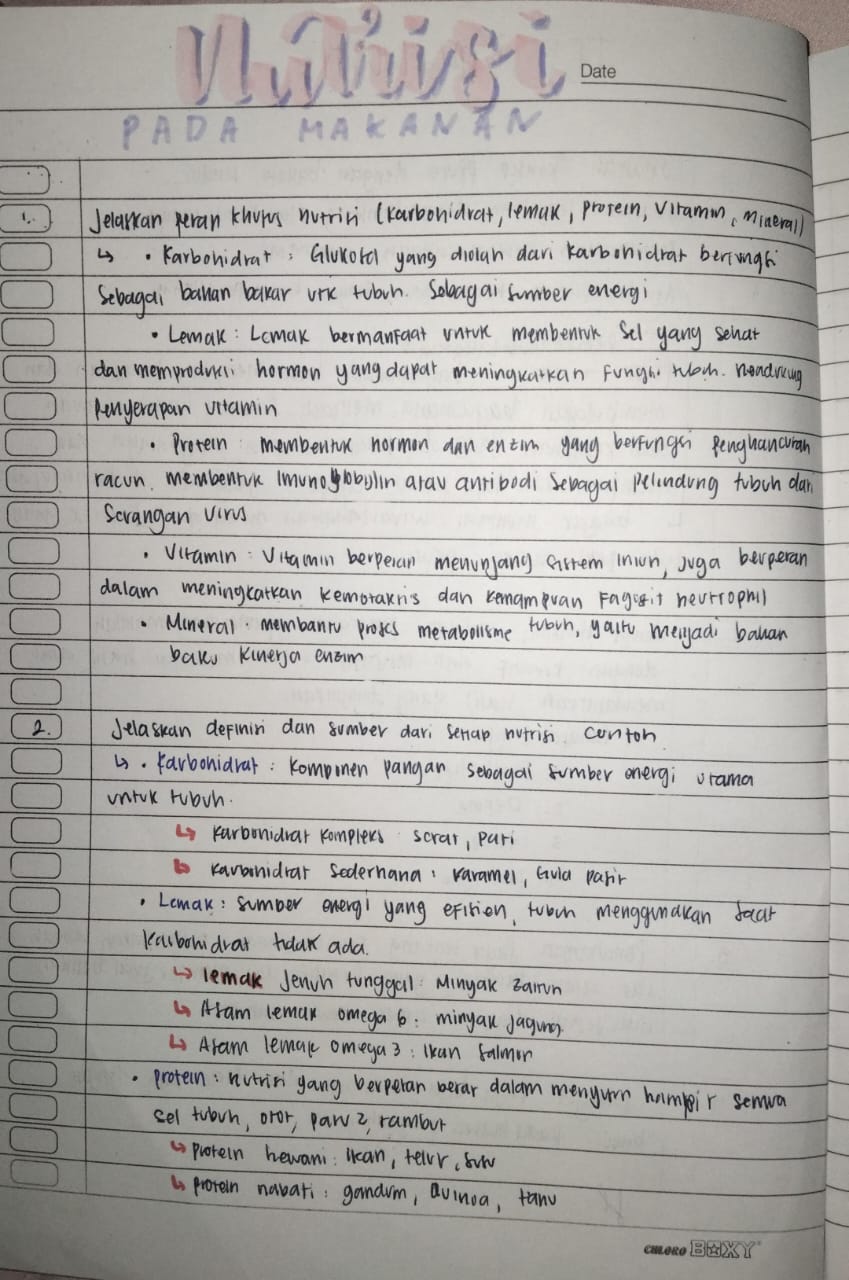 Nutrisi
Date
PADA MAKANAN
1. Jelaskan peran khusus nutrisi (karbohidrat, lemak, protein, vitamin, mineral)
↳ • Karbohidrat : Glukosa yang diolah dari karbohidrat berfungsi
Sebagai bahan bakar utk tubuh. Sebagai sumber energi
• Lemak : Lemak bermanfaat untuk membentuk sel yang sehat
dan memproduksi hormon yang dapat meningkatkan fungsi tubuh. Mendukung
Penyerapan vitamin
• Protein : membentuk hormon dan enzim yang berfungsi penghancuran
racun. membentuk Imunoglobulin atau antibodi sebagai pelindung tubuh dari
Serangan virus
• Vitamin : Vitamin berperan menunjang sistem imun, juga berperan
dalam meningkatkan kemotaksis dan kemampuan fagosit neutrophil
• Mineral : membantu proses metabolisme tubuh, yaitu menjadi bahan
baku kinerja enzim
2. Jelaskan definisi dan sumber dari setiap nutrisi. Contoh
↳ • Karbohidrat : komponen pangan sebagai sumber energi utama
untuk tubuh.
↳ Karbohidrat kompleks : serat, pati
↳ Karbohidrat sederhana : karamel, Gula pasir
• Lemak : Sumber energi yang efisien, tubuh menggunakan saat
Karbohidrat tidak ada.
↳ lemak Jenuh tunggal : Minyak zaitun
↳ Asam lemak omega 6 : minyak jagung
↳ Asam lemak omega 3 : Ikan Salmon
• protein : nutrisi yang berperan berar dalam menyusun hampir semua
sel tubuh, otot, paru 2, rambut
↳ protein hewani : Ikan, telur, susu
↳ protein nabati : gandum, Quinoa, tahu
BOXY